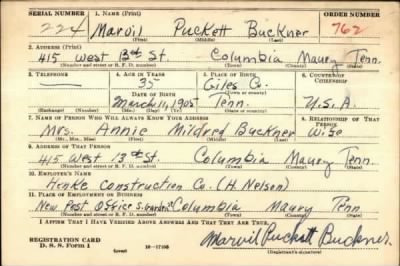 SERIAL NUMBER 1. NAME (Print) ORDER NUMBER
224 Marvil Puckett Buckner 762
(First) (Middle) (Last)
2. ADDRESS (Print)
415 West 13th St. Columbia Maury Tenn.
(Number and street or R. F. D. number) (Town) (County) (State)
3. TELEPHONE 4. AGE IN YEARS 5. PLACE OF BIRTH 6. COUNTRY OF CITIZENSHIP
35 Giles Co.
DATE OF BIRTH (Town or county)
March 11, 1905 Tenn. U.S.A.
(Exchange) (Number) (Mo.) (Day) (Yr.) (State or country)
7. NAME OF PERSON WHO WILL ALWAYS KNOW YOUR ADDRESS 8. RELATIONSHIP OF THAT PERSON
Mrs. Annie Mildred Buckner Wife
(Mr., Mrs., Miss) (First) (Middle) (Last)
9. ADDRESS OF THAT PERSON
415 West 13th St. Columbia Maury Tenn.
(Number and street or R. F. D. number) (Town) (County) (State)
10. EMPLOYER'S NAME
Henke Construction Co. (H. Nelson)
11. PLACE OF EMPLOYMENT OR BUSINESS
New Post Office S. Garden St Columbia Maury Tenn
(Number and street or R. F. D. number) (Town) (County) (State)
I AFFIRM THAT I HAVE VERIFIED ABOVE ANSWERS AND THAT THEY ARE TRUE.
REGISTRATION CARD
D. S. S. Form 1 (over) 16—17105 Marvil Puckett Buckner
(Registrant's signature)